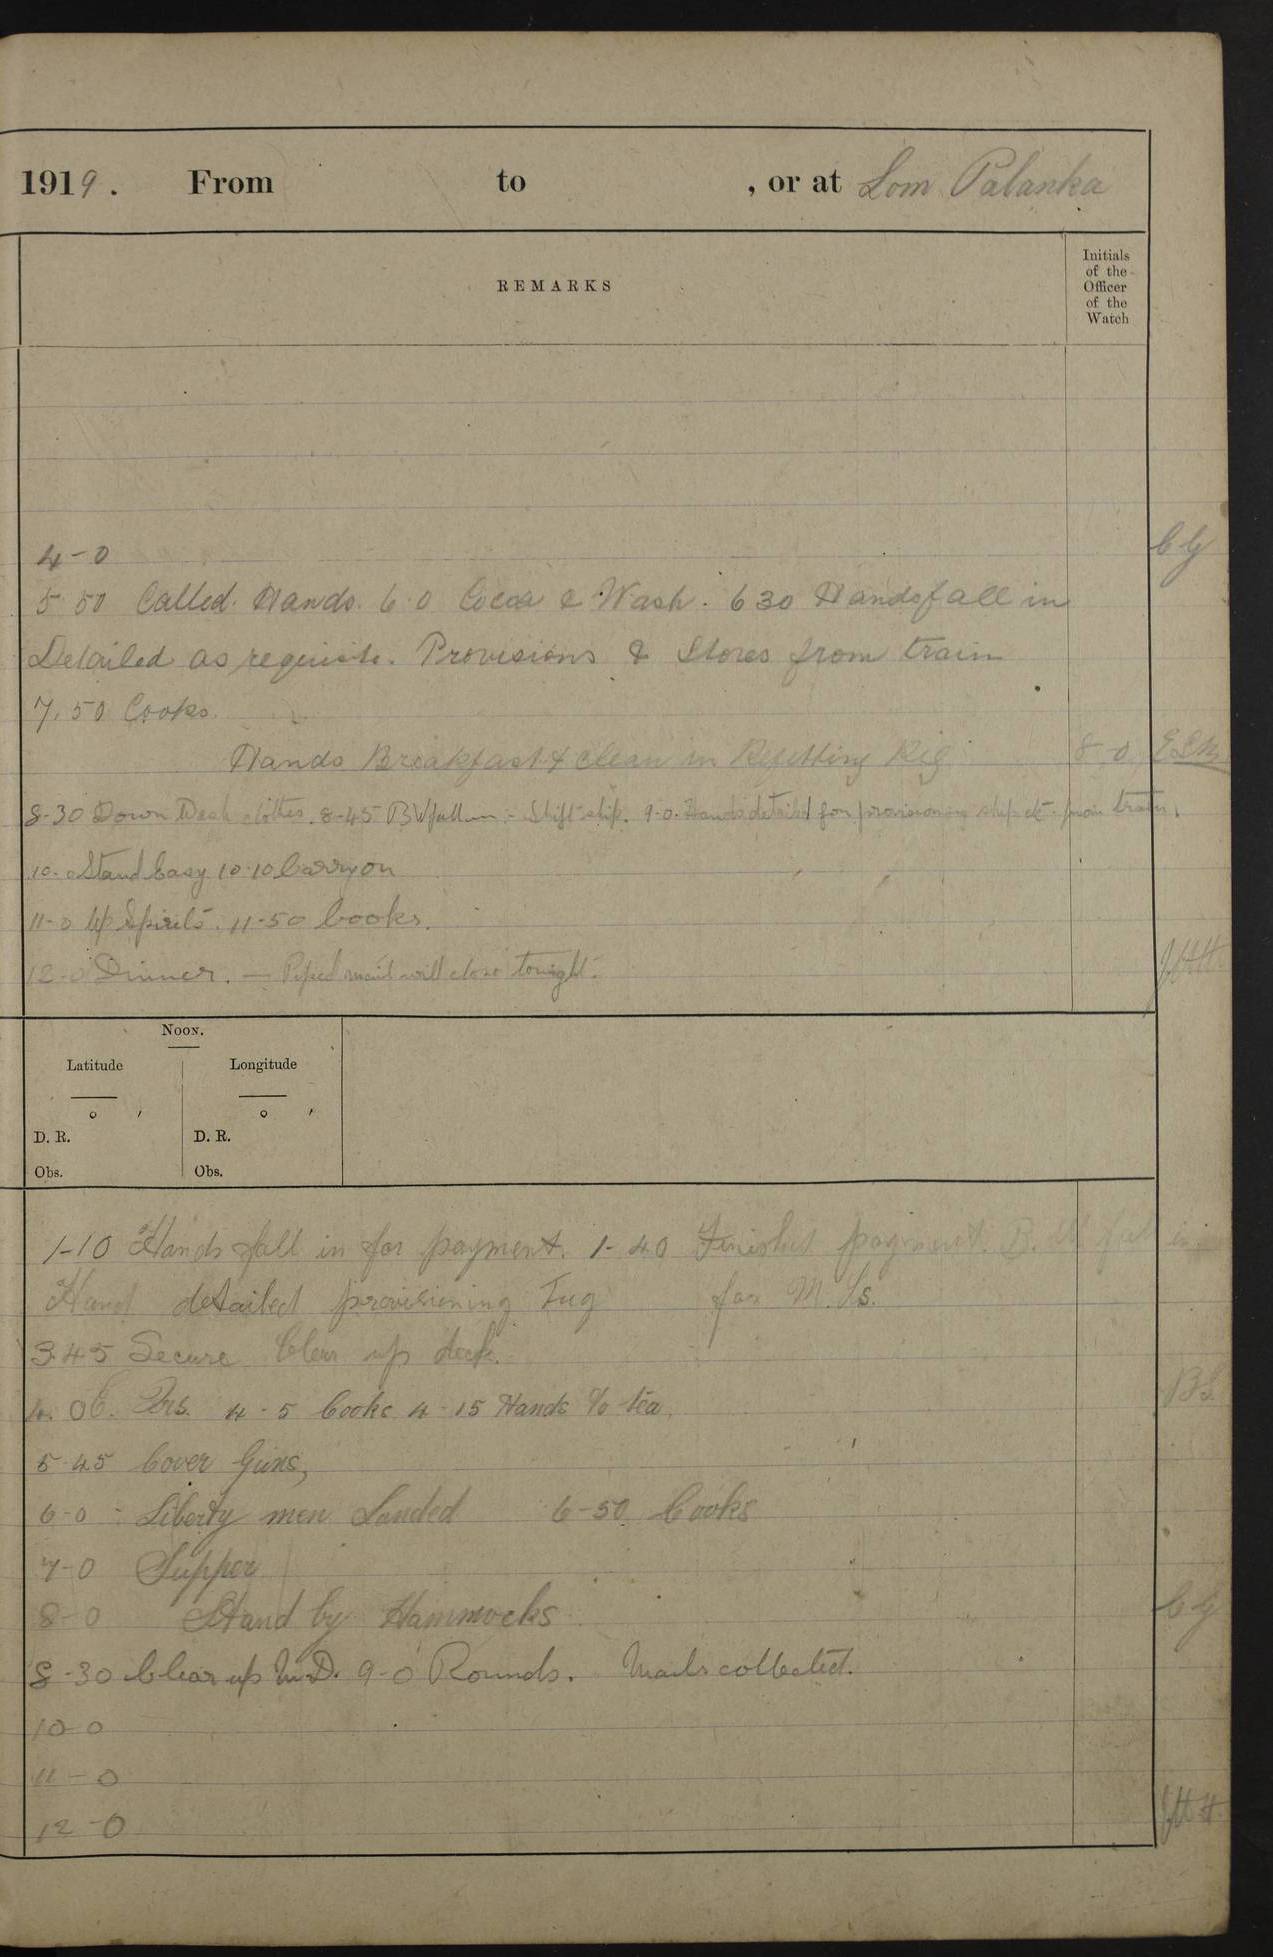 1919. From to , or at Lom Palanka
REMARKS
Initials
of the
Officer
of the
Watch
4-0 CG
5 50 Called Hands. 6 0 Cocoa & Wash. 6 30 Hands fall in
Detailed as requisite. Provisions & Stores from train
7.50 Cooks.
Hands Breakfast & clean in Refitting Rig 8-0
8-30 Down Wash clothes. 8-45 BW fall in - Shift ship. 9-0. Hands detailed for provisioning ship etc from train.
10. Stand Easy 10.10 Carry on
11-0 Up Spirits. 11-50 Cooks.
12-0 Dinner. — Piped mail will close tonight.
Noon.
Latitude Longitude
° ′ ° ′
D. R. D. R.
Obs. Obs.
1-10 Hands fall in for payment. 1-40 Finished payment. B. W fall in
Hand detailed provisioning Tug for M.Ls.
3 45 Secure Clear up deck.
4.0 E. Qrs. 4-5 Cooks 4-15 Hands to tea. BS.
5-45 Cover Guns,
6-0 - Liberty men Landed 6-50 Cooks
7-0 Supper
8-0 Stand by Hammocks CG
8-30 Clear up M.D. 9-0 Rounds. Mails collected.
10-0
11-0
12-0